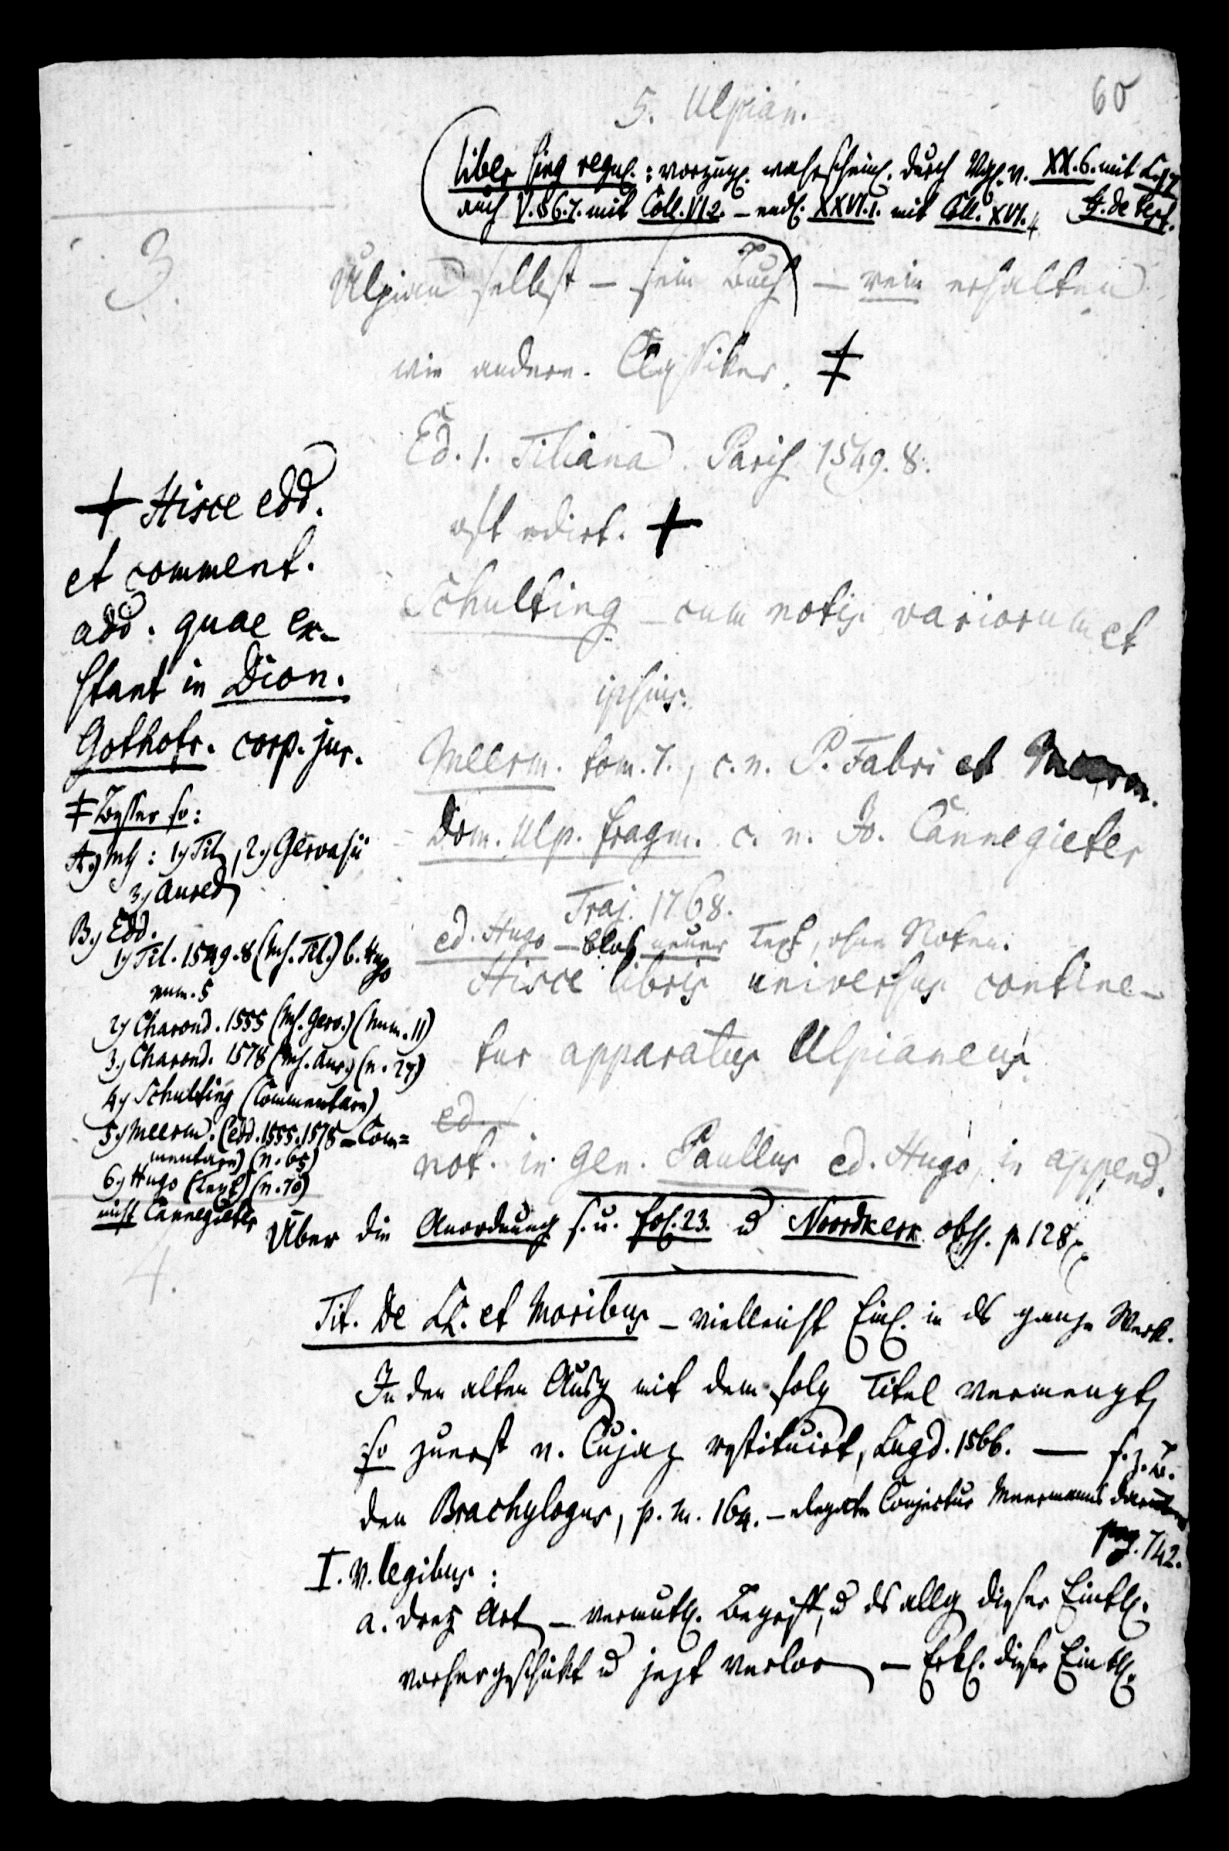 60
5. Ulpian.
liber sing regul. : vorzügl. wahrscheinl. durch Vgl. v. XX.6. mit L.17
auch V.§6.7. mit Coll. VI.2. – endl. XXVI.1. mit Coll. XVI.4 ff. de test.
3.
Ulpian selbst – sein Buch – rein erhalten
wie andere Classiker. ‡
Ed. 1. Tiliana. Paris 1549. 8.
oft edirt. +
Schulting – cum notis variorum et
ipsius.
Meerm. tom. 7., c. n. P. Fabri et Meerm.
Dom. Ulp. fragm. c. n. Jo. Cannegieter
Traj. 1768.
ed. Hugo – blos neuer Text, ohne Noten.
Hisce libris universus contine-
tur apparatus Ulpianeus.
ed.
not. in gen. Paullus ed. Hugo, in append.
+ Hisce edd.
et comment.
add: quae ex-
stant in Dion.
Gothofr. corp. jur.
‡ Besser so:
A.) Ms: 1.) Til, 2.) Gervasii
3.) Aured
B.) Edd.
1.) Til. 1549. 8 (Ms. Til.) b. Hugo
num. 5
2.) Charond. 1555 (Ms. Gerv.) (num. 11)
3.) Charond. 1578 (Ms. Aur.) (n. 27)
4.) Schulting (Commentare)
5.) Meerm. (edd. 1555. 1578 – Com=
mentare) (n. 65)
6.) Hugo (Text) (n. 70)
nicht Cannegieter
Über die Anordnung s. u. fol. 23. u Noordkerk obss. p 128
4.
Tit. De LL. et Moribus – vielleicht Einl. in ds ganze Werk.
In den alten Ausg mit dem folg Titel vermengt,
so zuerst v. Cujaz restituirt, Lugd. 1566. — s. z. B.
den Brachylogus, p. m. 164. – elegante Conjectur Meermanns darüber
pag. 742.
I. V. legibus :
a. drey Art – vermuthl. Begriff, u ds allg dieser Einthl.
vorhergeschikt u jezt verlor – Erkl. dieser Einthl.